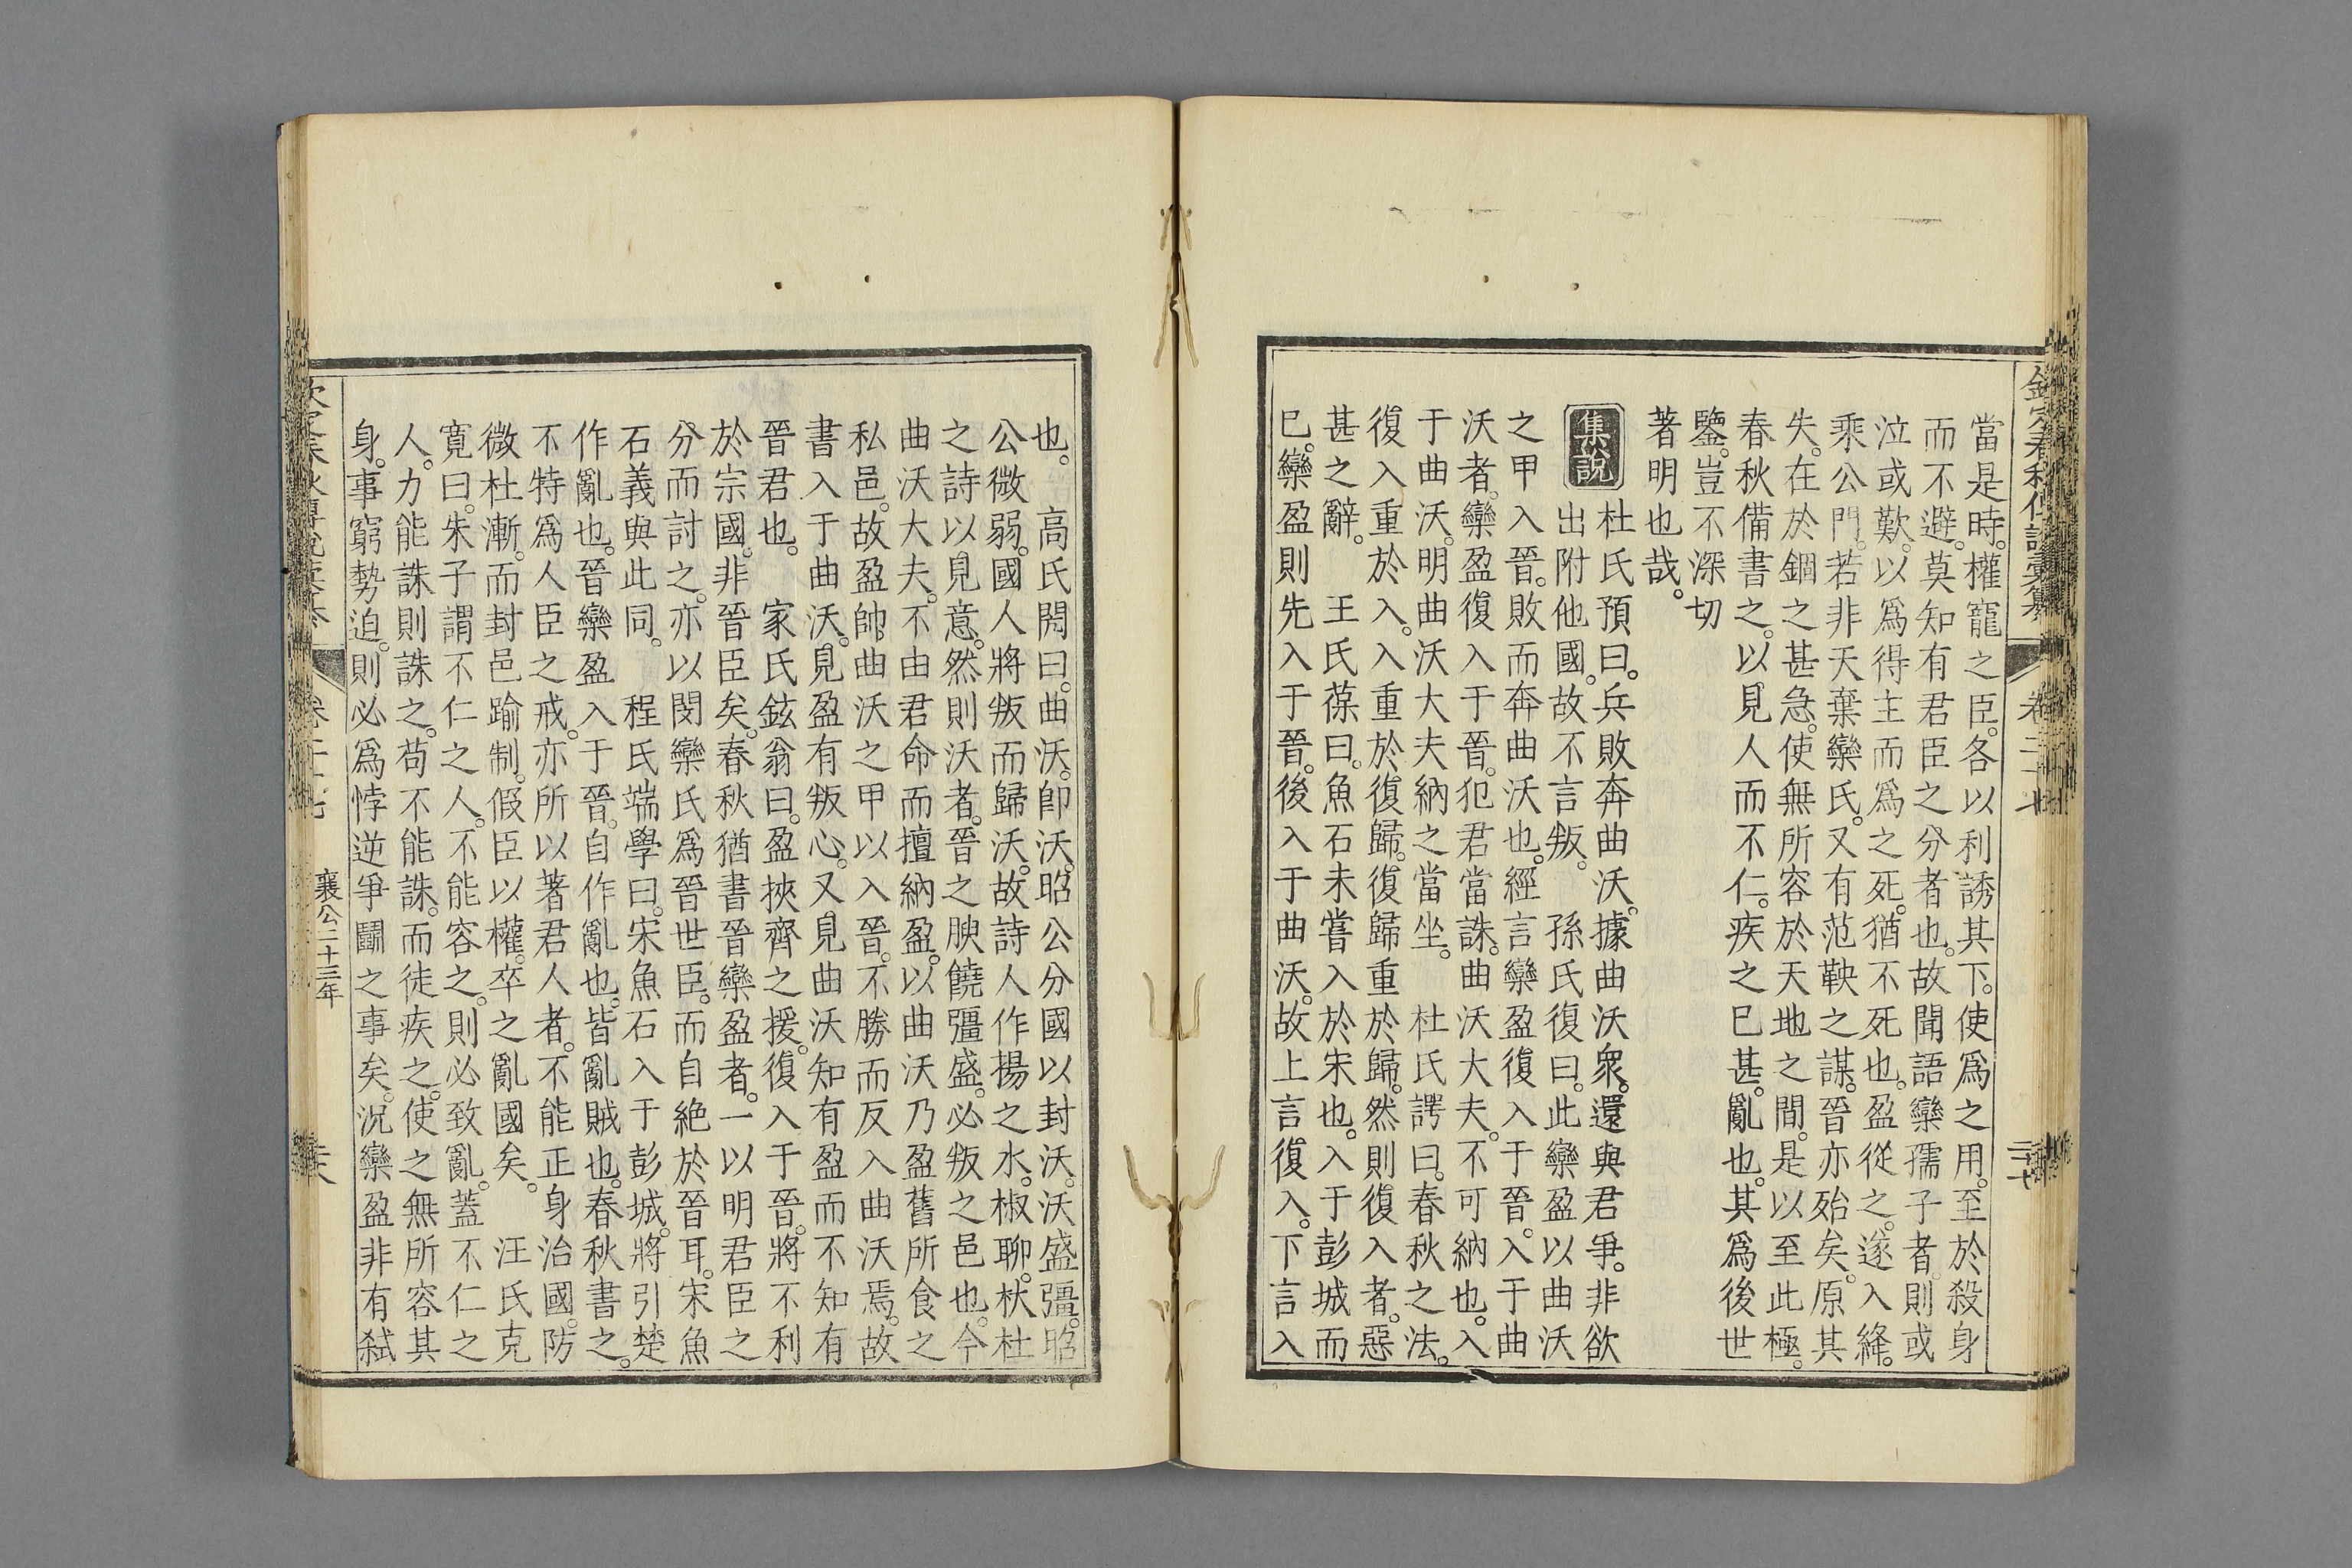 欽定春秋傳說彙纂 卷二十七 三十七
當是時。權寵之臣。各以利誘其下。使爲之用。至於殺身
而不避。莫知有君臣之分者也。故聞語欒孺子者。則或
泣或歎。以爲得主而爲之死。猶不死也。盈從之。遂入絳。
乘公門。若非天棄欒氏。又有范鞅之謀。晉亦殆矣。原其
失。在於錮之甚急。使無所容於天地之間。是以至此極。
春秋備書之。以見人而不仁。疾之巳甚。亂也。其爲後世
鑒。豈不深切
著明也哉。
集說 杜氏預曰。兵敗奔曲沃。據曲沃衆。還與君爭。非欲
出附他國。故不言叛。 孫氏復曰。此欒盈以曲沃
之甲入晉。敗而奔曲沃也。經言欒盈復入于晉。入于曲
沃者。欒盈復入于晉。犯君當誅。曲沃大夫。不可納也。入
于曲沃。明曲沃大夫納之當坐。 杜氏諤曰。春秋之法。
復入重於入。入重於復歸。復歸重於歸。然則復入者。惡
甚之辭。 王氏葆曰。魚石未嘗入於宋也。入于彭城而
巳。欒盈則先入于晉。後入于曲沃。故上言復入。下言入
也。 高氏閌曰。曲沃。卽沃。昭公分國以封沃。沃盛彊。昭
公微弱。國人將叛而歸沃。故詩人作揚之水。椒聊。杕杜
之詩以見意。然則沃者。晉之腴饒彊盛。必叛之邑也。今
曲沃大夫。不由君命而擅納盈。以曲沃乃盈舊所食之
私邑。故盈帥曲沃之甲以入晉。不勝而反入曲沃焉。故
書入于曲沃。見盈有叛心。又見曲沃知有盈而不知有
晉君也。 家氏鉉翁曰。盈挾齊之援。復入于晉。將不利
於宗國。非晉臣矣。春秋猶書晉欒盈者。一以明君臣之
分而討之。亦以閔欒氏爲晉世臣。而自絶於晉耳。宋魚
石義與此同。 程氏端學曰。宋魚石入于彭城。將引楚
作亂也。晉欒盈入于晉。自作亂也。皆亂賊也。春秋書之。
不特爲人臣之戒。亦所以著君人者。不能正身治國。防
微杜漸。而封邑踰制。假臣以權。卒之亂國矣。 汪氏克
寬曰。朱子謂不仁之人。不能容之。則必致亂。蓋不仁之
人。力能誅則誅之。苟不能誅。而徒疾之。使之無所容其
身。事窮勢迫。則必爲悖逆爭鬭之事矣。況欒盈非有弑
欽定春秋傳說彙纂 卷二十七 襄公二十三年 三十八